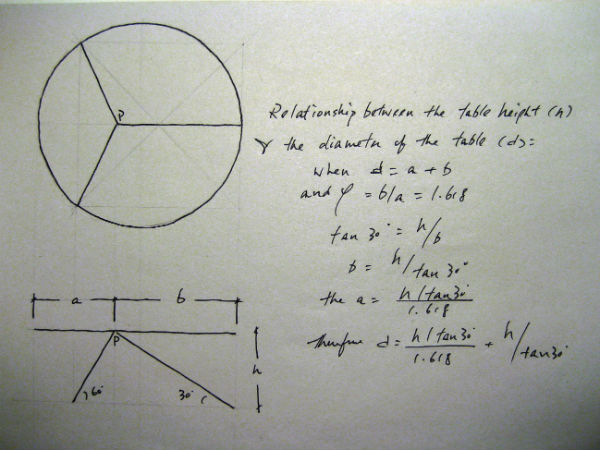 P
Relationship between the table height (h)
& the diameter of the table (d):
when d = a + b
and φ = b/a = 1.618
tan 30° = h/b
b = h/tan 30°
the a = h/tan30° / 1.618
therefore d = h/tan30° / 1.618 + h/tan30°
a b
P
h
60° 30°